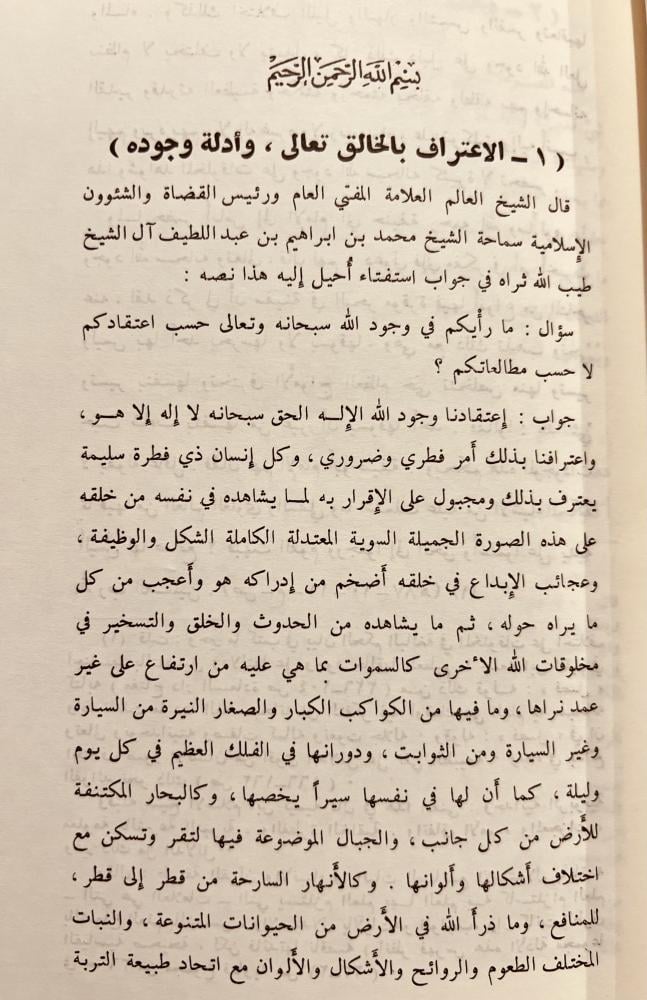 بسم الله الرحمن الرحيم
( ١ ـ الاعتراف بالخالق تعالى ، وأدلة وجوده )
قال الشيخ العالم العلامة المفتي العام ورئيس القضاة والشئوون
الإسلامية سماحة الشيخ محمد بن ابراهيم بن عبد اللطيف آل الشيخ
طيب الله ثراه في جواب استفتاء أُحيل إليه هذا نصه :
سؤال : ما رأْيكم في وجود الله سبحانه وتعالى حسب اعتقادكم
لا حسب مطالعاتكم ؟
جواب : إعتقادنا وجود الله الإلــه الحق سبحانه لا إله إلا هــو ،
واعترافنا بذلك أَمر فطري وضروري ، وكل إنسان ذي فطرة سليمة
يعترف بذلك ومجبول على الإقرار به لمــا يشاهده في نفسه من خلقه
على هذه الصورة الجميلة السوية المعتدلة الكاملة الشكل والوظيفة ،
وعجائب الإبداع في خلقه أَضخم من إدراكه هو وأَعجب من كل
ما يراه حوله ، ثم ما يشاهده من الحدوث والخلق والتسخير في
مخلوقات الله الأخرى كالسموات بما هي عليه من ارتفاع على غير
عمد نراها ، وما فيها من الكواكب الكبار والصغار النيرة من السيارة
وغير السيارة ومن الثوابت ، ودورانها في الفلك العظيم في كل يوم
وليلة ، كما أَن لها في نفسها سيراً يخصها ، وكالبحار المكتنفة
للأَرض من كل جانب ، والجبال الموضوعة فيها لتقر وتسكن مع
اختلاف أَشكالها وأَلوانها . وكالأَنهار السارحة من قطر إلى قطر ،
للمنافع ، وما ذرأَ الله في الأَرض من الحيوانات المتنوعة ، والنبات
المختلف الطعوم والروائح والأَشكال والأَلوان مع اتحاد طبيعة التربة